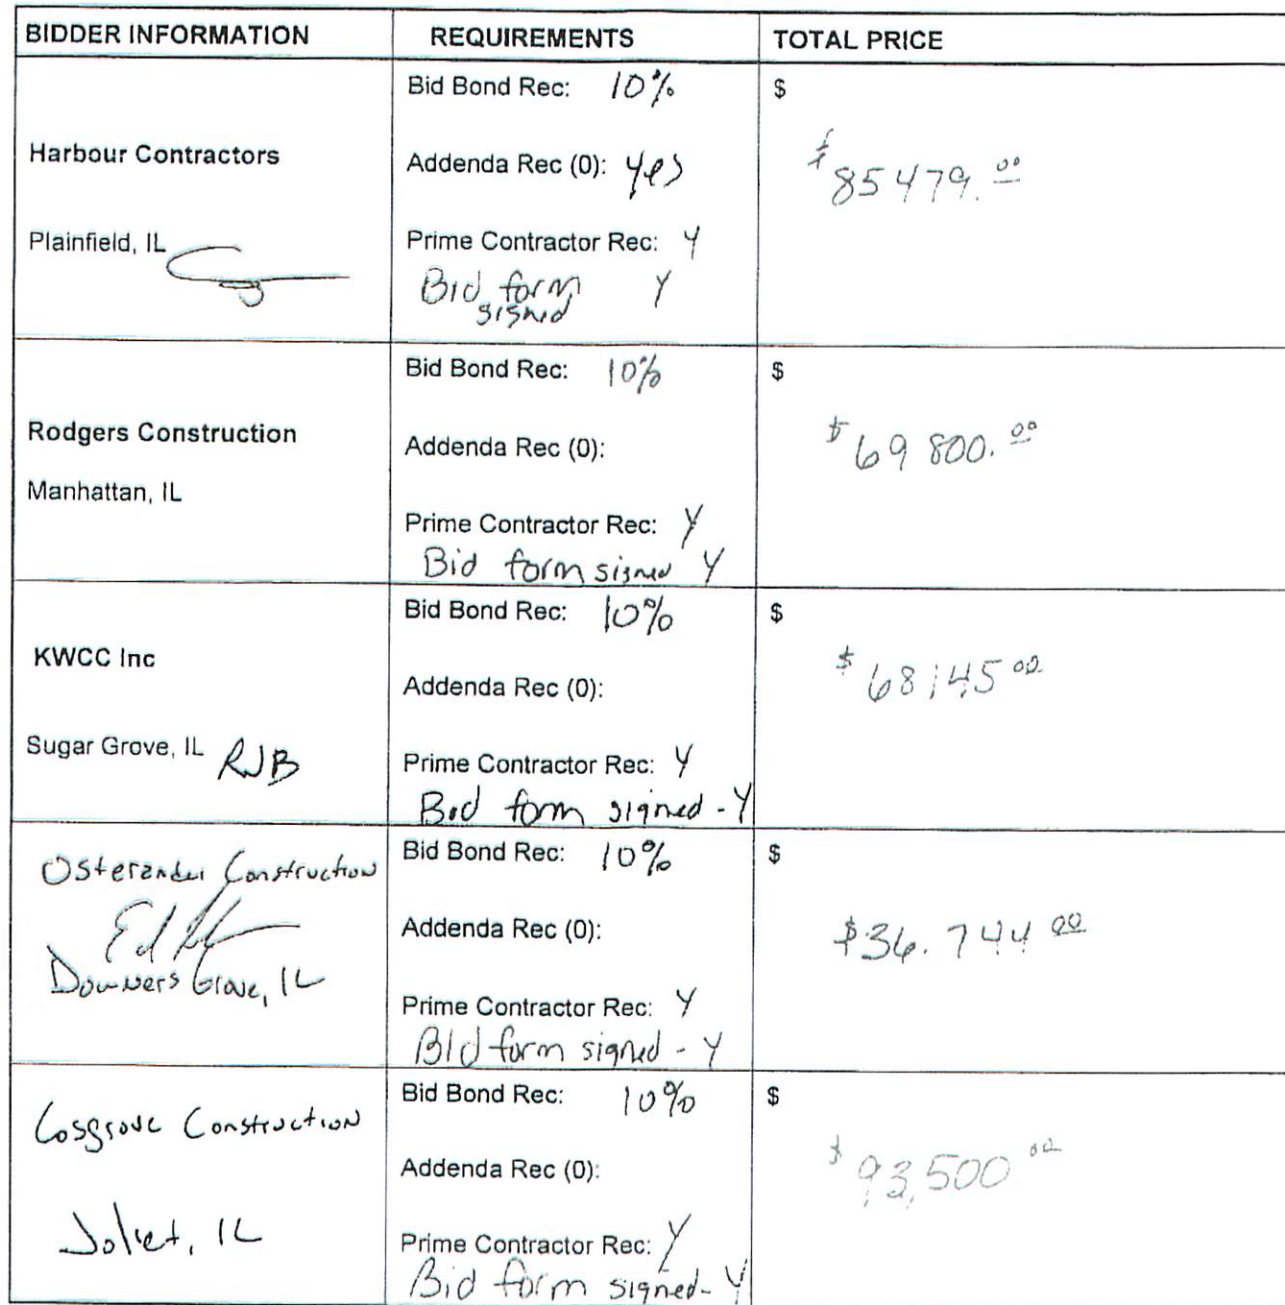 BIDDER INFORMATION REQUIREMENTS TOTAL PRICE
Harbour Contractors
Plainfield, IL
Bid Bond Rec: 10%
Addenda Rec (0): yes
Prime Contractor Rec: Y
Bid form Y
signed
$
$85479.00
Rodgers Construction
Manhattan, IL
Bid Bond Rec: 10%
Addenda Rec (0):
Prime Contractor Rec: Y
Bid form signed Y
$
$69 800.00
KWCC Inc
Sugar Grove, IL RJB
Bid Bond Rec: 10%
Addenda Rec (0):
Prime Contractor Rec: Y
Bid form signed - Y
$
$68,145 00
Osterander Construction
Ed
Downers Grove, IL
Bid Bond Rec: 10%
Addenda Rec (0):
Prime Contractor Rec: Y
Bid form signed - Y
$
$36.744 00
Cosgrove Construction
Joliet, IL
Bid Bond Rec: 10%
Addenda Rec (0):
Prime Contractor Rec: Y
Bid form signed - Y
$
$93,500 00